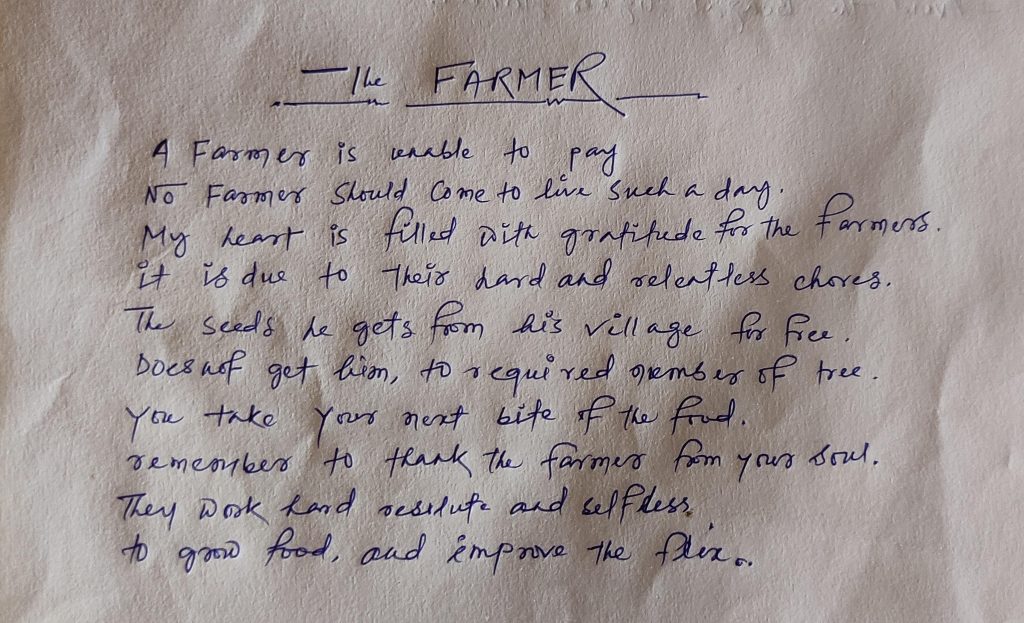 The FARMER
A Farmer is unable to pay
NO Farmer Should Come to live Such a day.
My heart is filled with gratitude for the farmers.
it is due to Their hard and relentless chores.
The seeds he gets from his village for free.
Does not get him, to required member of tree.
You take your next bite of the food.
remember to thank the farmer from your soul.
They work hard resolute and selfless,
to grow food, and improve the